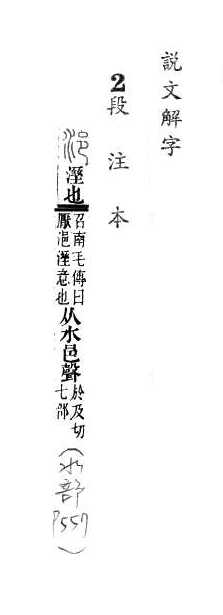 説文解字
2段注本
浥 溼也召南毛傳曰厭浥溼意也从水邑聲於及切七部(水部P557)